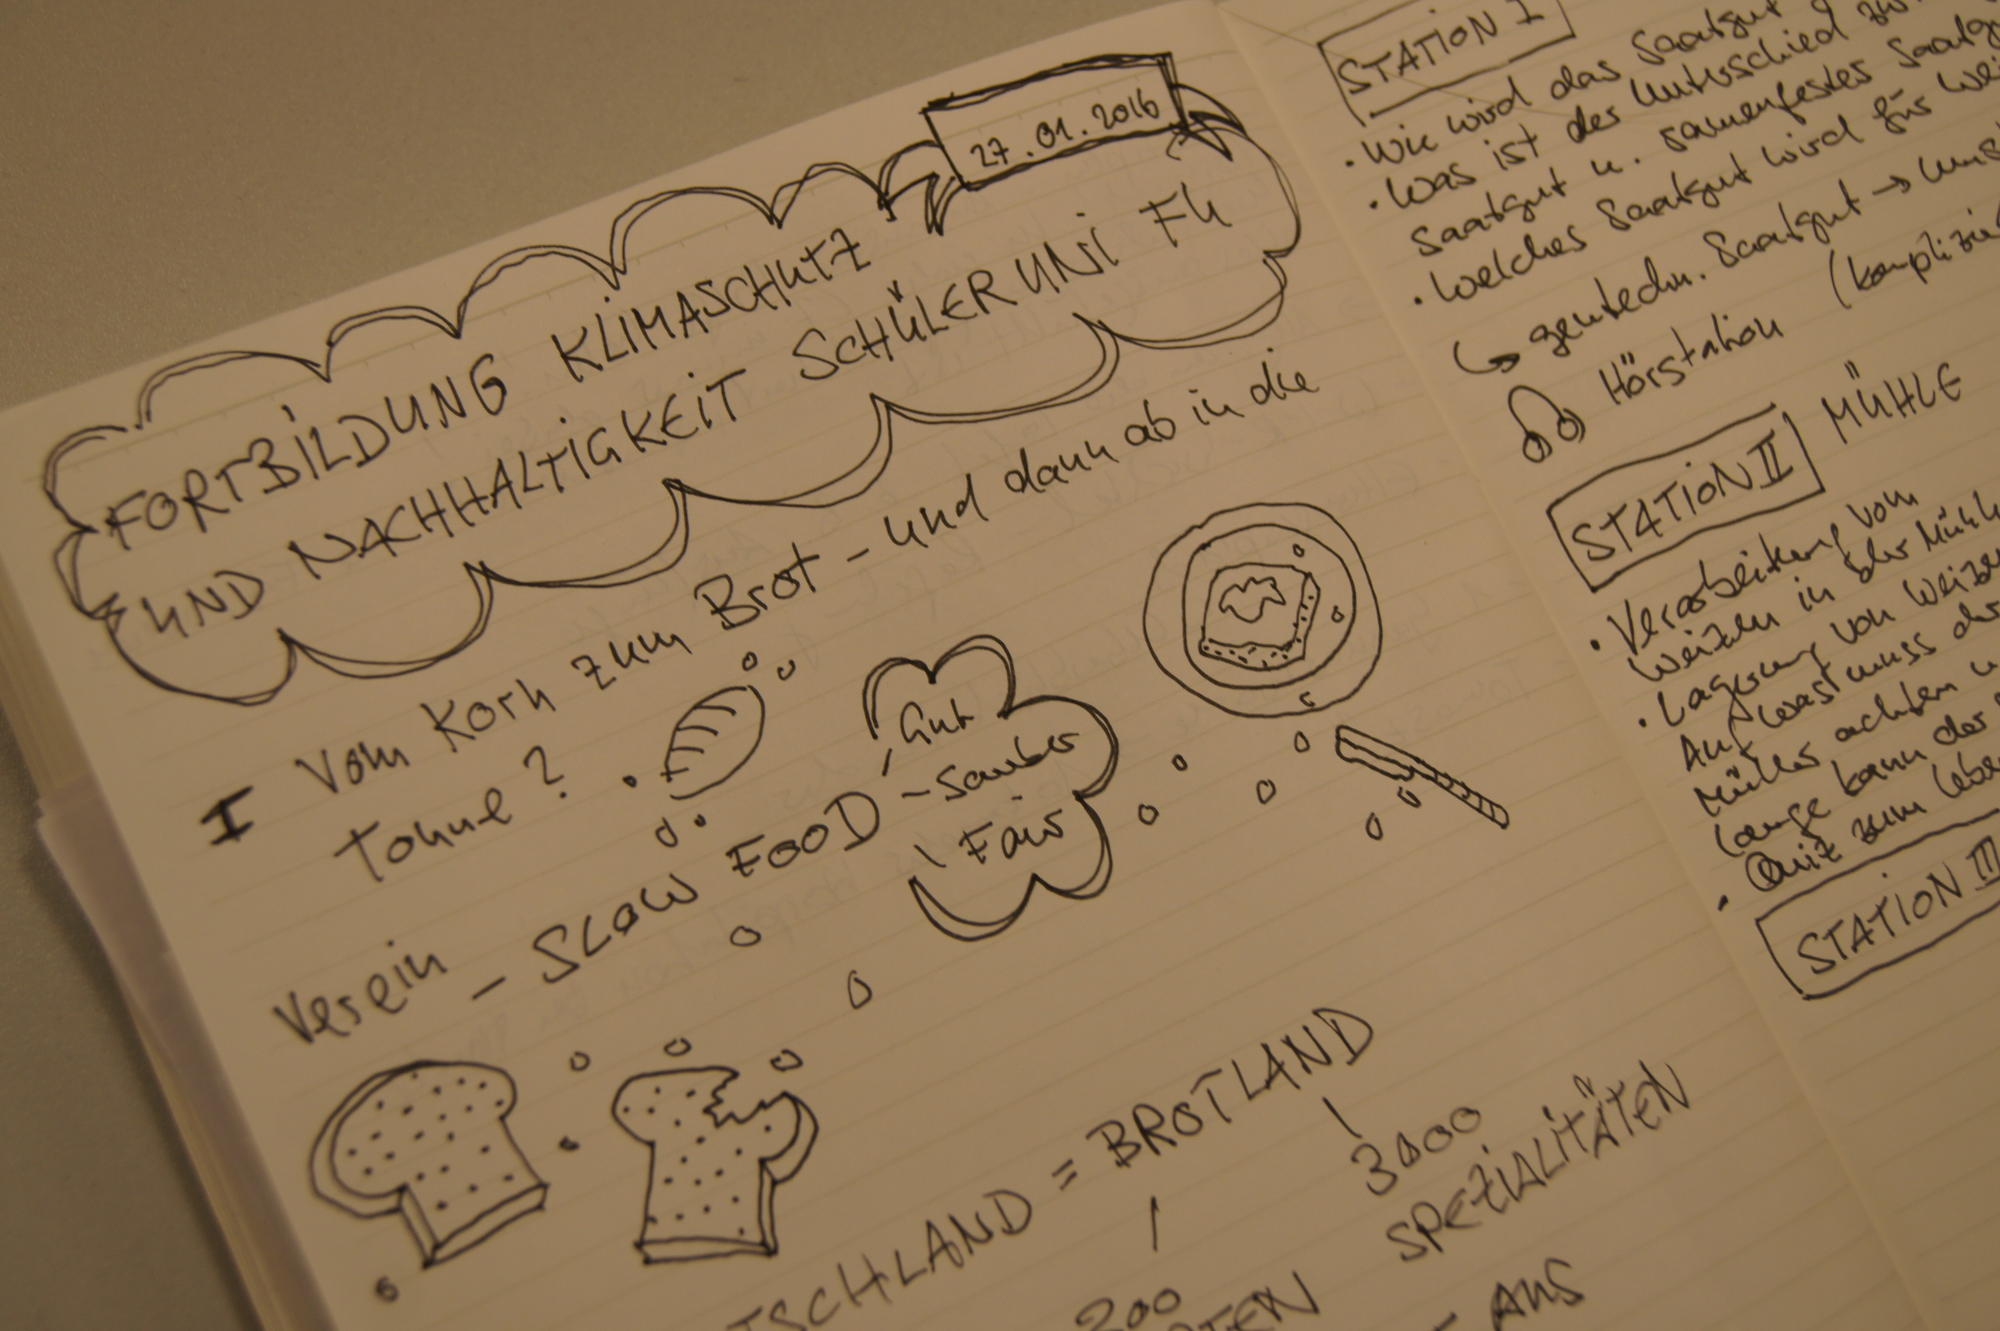 27.01.2016
FORTBILDUNG KLIMASCHUTZ
UND NACHHALTIGKEIT SCHÜLERUNI FU
I Vom Korn zum Brot - und dann ab in die
Tonne?
Verein - SLOW FOOD
Gut
- Sauber
Fair
TSCHLAND = BROTLAND
3000
SPEZIALITÄTEN
200
- AUS
STATION I
• Wie wird das Saatgut
• Was ist der Unterschied
Saatgut u. samenfestes
• Welches Saatgut wird für
gentechn. Saatgut →
Hörstation
STATION II MÜHLE
• Verarbeitung vom
Weizen in der
• Lagerung von Weizen
Auf was muss der
Müller achten
lange kann der
• Quiz zum
STATION III